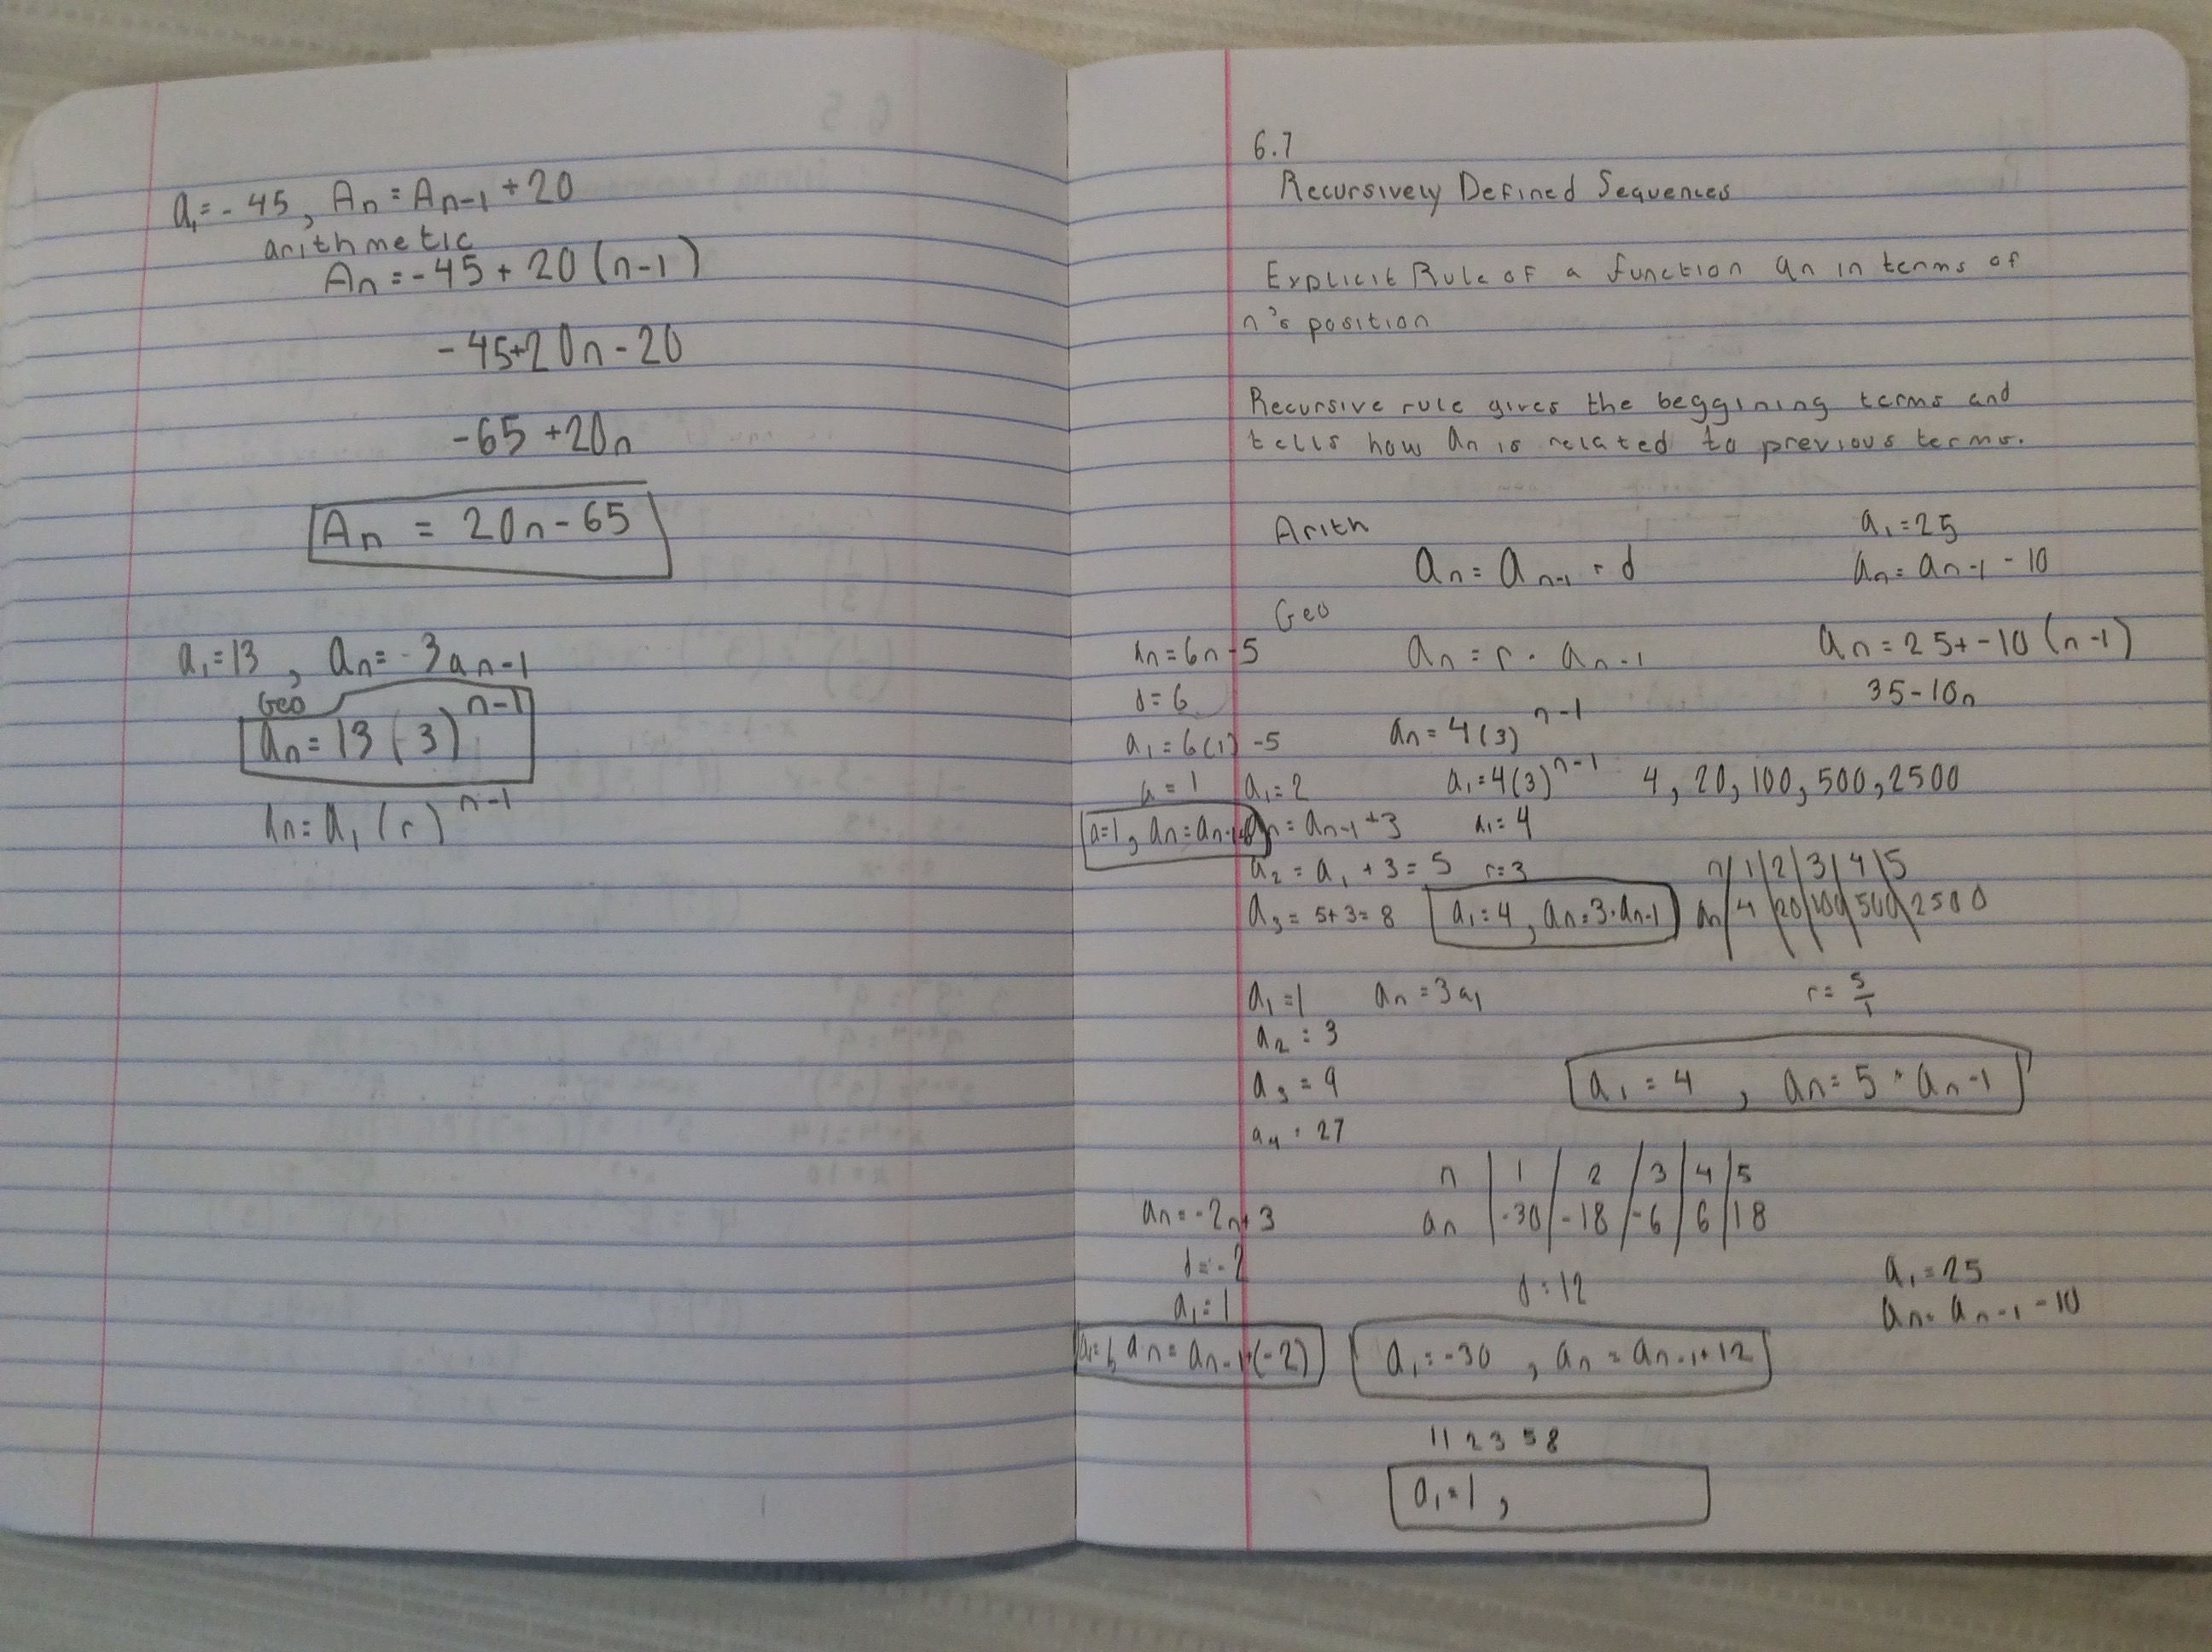 a₁=-45, An=An-1+20
arithmetic
An=-45+20(n-1)
-45+20n-20
-65+20n
An = 20n-65
a₁=13, an=-3an-1
Geo
an=13(3)^n-1
an=a₁(r)^n-1
6.7
Recursively Defined Sequences
Explicit Rule of a function an in terms of
n's position
Recursive rule gives the beggining terms and
tells how an is related to previous terms.
Arith
an=an-1+d
a₁=25
an=an-1-10
Geo
an=r·an-1
an=25+-10(n-1)
35-10n
an=6n-5
d=6
a₁=6(1)-5
a=1
a=1, an=an-1+6
a₁=2
an=an-1+3
a₂=a₁+3=5
a₃=5+3=8
an=4(3)^n-1
a₁=4(3)^n-1
a₁=4
r=3
a₁=4, an=3·an-1
4, 20, 100, 500, 2500
n 1 2 3 4 5
an 4 20 100 500 2500
r=5/1
a₁=4, an=5·an-1
a₁=1 an=3a₁
a₂=3
a₃=9
a₄=27
an=-2n+3
d=-2
a₁=1
an=an-1+(-2)
n 1 2 3 4 5
an -30 -18 -6 6 18
d=12
a₁=-30, an=an-1+12
a₁=25
an=an-1-10
1 1 2 3 5 8
a₁=1,